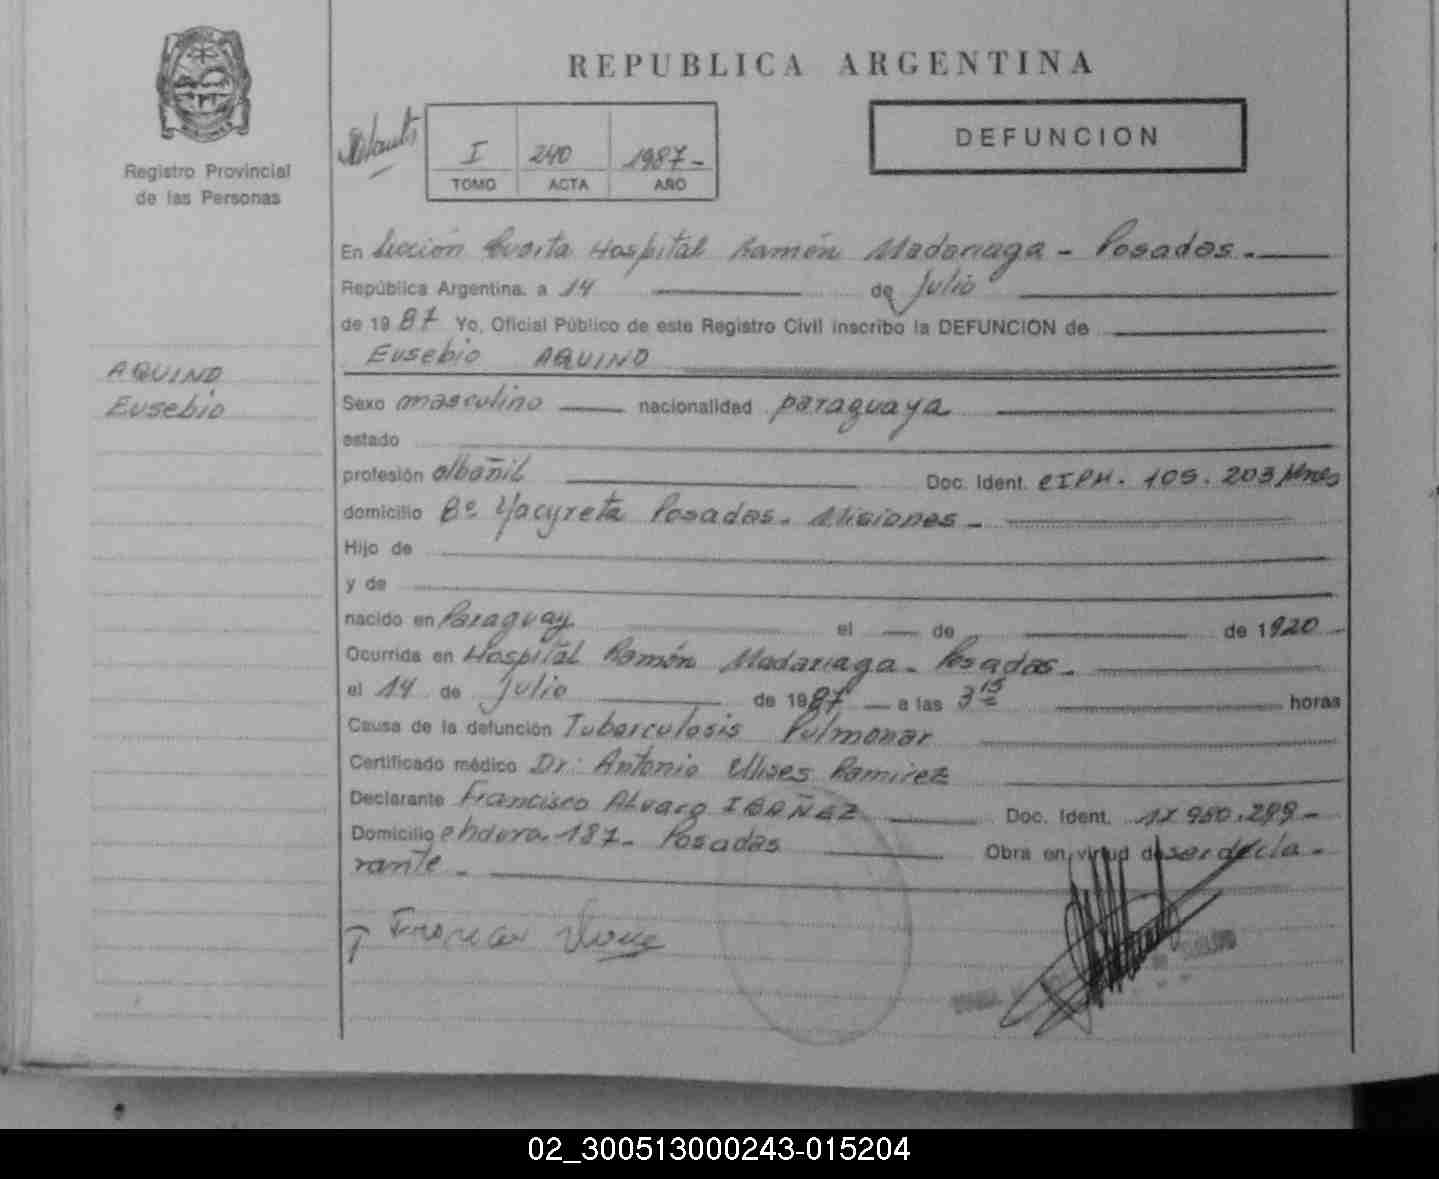 REPUBLICA ARGENTINA
DEFUNCION
I 240 1987-
TOMO ACTA AÑO
Registro Provincial
de las Personas
En Sección Hospital Ramón Madariaga - Posadas.
República Argentina, a 14 de Julio
de 1987 Yo, Oficial Público de este Registro Civil inscribo la DEFUNCION de
Eusebio AQUINO
AQUINO
Eusebio
Sexo masculino nacionalidad paraguaya
estado
profesión albañil Doc. Ident. CIPM. 105.203 Mnes
domicilio Bº Yacyreta Posadas. Misiones -
Hijo de
y de
nacido en Paraguay el de de 1920
Ocurrida en Hospital Ramón Madariaga - Posadas -
el 14 de Julio de 1987 a las 3 15 horas
Causa de la defunción Tuberculosis Pulmonar
Certificado médico Dr: Antonio Ulises Ramirez
Declarante Francisco Alvaro IBAÑEZ Doc. Ident.
Domicilio 187 - Posadas Obra en virtud de ser decla-
rante -
02_300513000243-015204